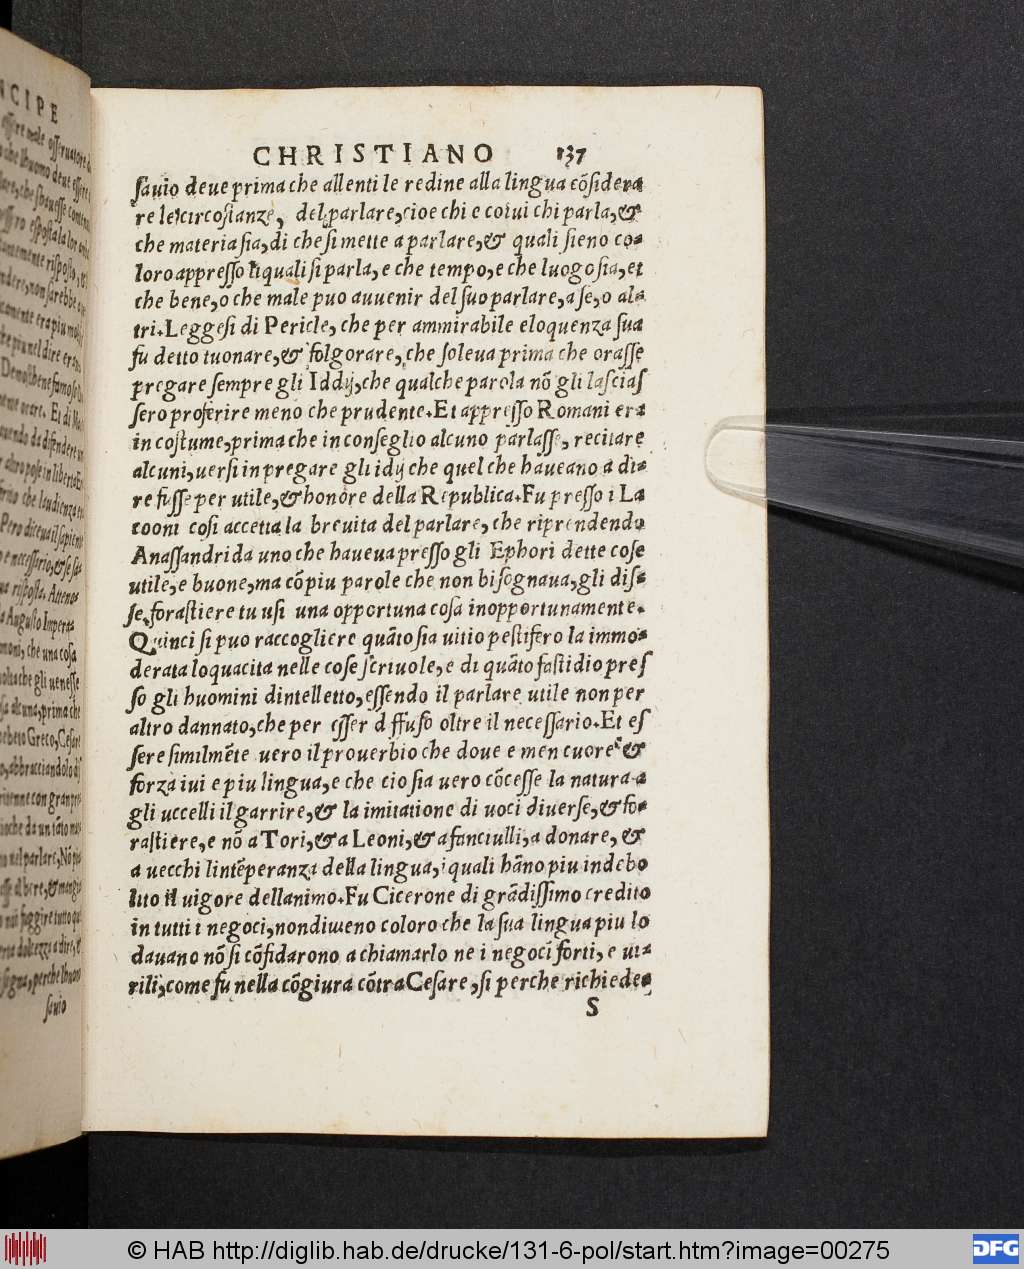 NCIPE
CHRISTIANO 137
ſauio deue prima che allenti le redine alla lingua cõſidera
re le circoſtanze, del parlare, cioe chi e colui chi parla, &
che materia ſia, di che ſi mette a parlare, & quali ſieno co-
loro appreſſo li quali ſi parla, e che tempo, e che luogo ſia, et
che bene, o che male puo auuenir del ſuo parlare, a ſe, o al-
tri. Leggeſi di Pericle, che per ammirabile eloquenza ſua
fu detto tuonare, & folgorare, che ſoleua prima che oraſſe
pregare ſempre gli Iddij, che qualche parola nõ gli laſciaſ
ſero proferire meno che prudente. Et appreſſo Romani era
in coſtume, prima che in conſeglio alcuno parlaſſe, recitare
alcuni, uerſi in pregare gli idij che quel che haueano a di-
re fuſſe per utile, & honore della Republica. Fu preſſo i La
cooni coſi accetta la breuita del parlare, che riprendendo
Anaſſandrida uno che haueua preſſo gli Ephori dette coſe
utile, e buone, ma cõ piu parole che non biſognaua, gli diſ-
ſe, foraſtiere tu uſi una opportuna coſa inopportunamente.
Quinci ſi puo raccogliere quãto ſia uitio peſtifero la immo-
derata loquacita nelle coſe ſcriuole, e di quãto faſtidio preſ
ſo gli huomini dintelletto, eſſendo il parlare utile non per
altro dannato, che per eſſer d ffuſo oltre il neceſſario. Et eſ
ſere ſimilmẽte uero il prouerbio che doue e men cuore &
forza iui e piu lingua, e che cio ſia uero cõceſſe la natura a
gli uccelli il garrire, & la imitatione di uoci diuerſe, & fo-
raſtiere, e nõ a Tori, & a Leoni, & a fanciulli, a donare, &
a uecchi lintẽperanza della lingua, i quali hãno piu indebo
lito il uigore dellanimo. Fu Cicerone di grãdiſſimo credito
in tutti i negoci, nondimeno coloro che la ſua lingua piu lo
dauano nõ ſi cõfidarono a chiamarlo ne i negoci forti, e ut-
rili, come fu nella cõgiura cõtra Ceſare, ſi perche richiede-
S
ſauio
© HAB http://diglib.hab.de/drucke/131-6-pol/start.htm?image=00275
DFG